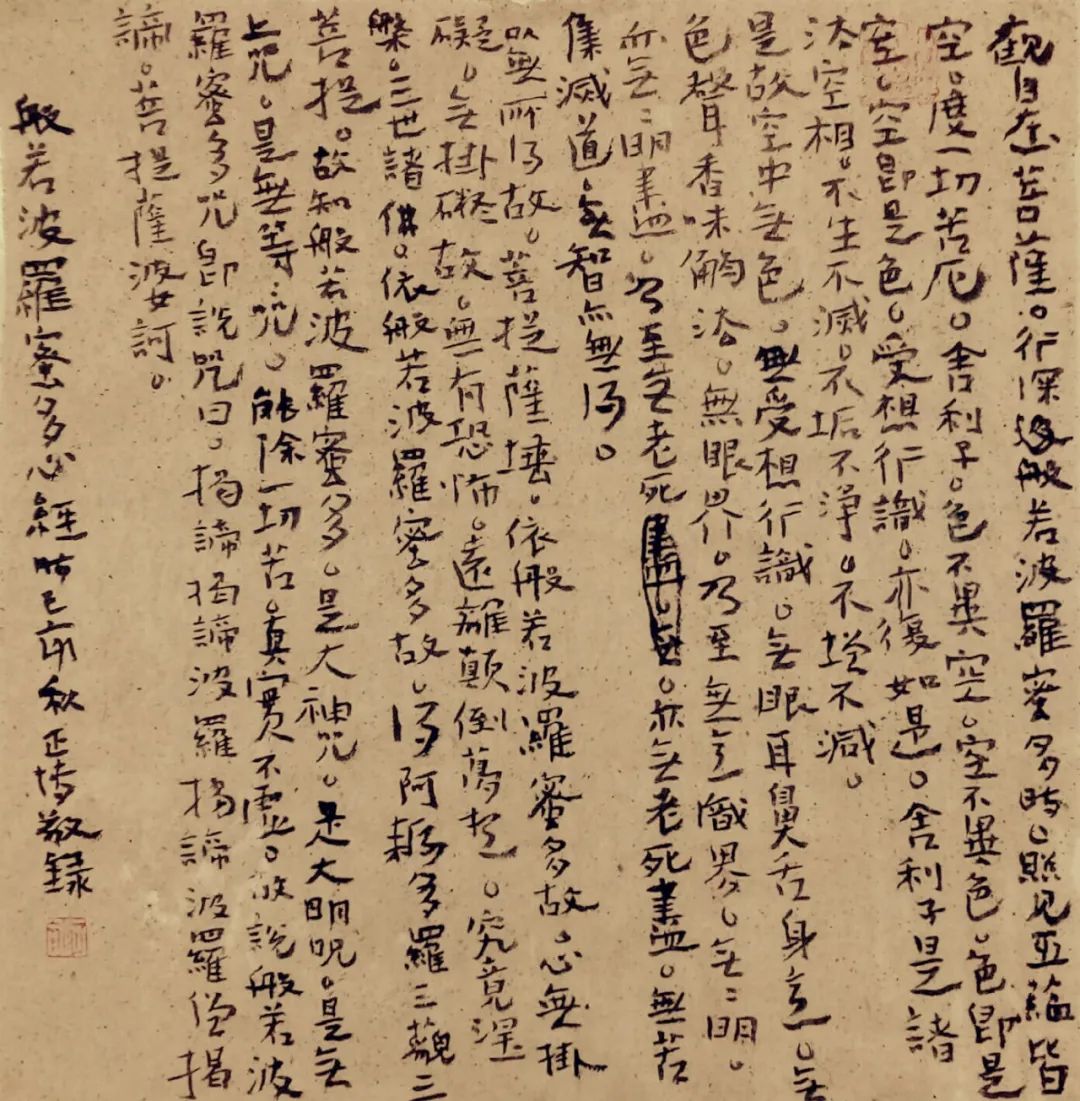 觀自在菩薩。行深般若波羅蜜多時。照見五蘊皆
空。度一切苦厄。舍利子。色不異空。空不異色。色即是
空。空即是色。受想行識。亦復如是。舍利子是諸
法空相。不生不滅。不垢不淨。不增不減。
是故空中無色。無受想行識。無眼耳鼻舌身意。無
色聲香味觸法。無眼界。乃至無意識界。無無明。
亦無無明盡。乃至無老死。亦無老死盡。無苦
集滅道。無智亦無得。
以無所得故。菩提薩埵。依般若波羅蜜多故。心無掛
礙。無掛礙故。無有恐怖。遠離顛倒夢想。究竟涅
槃。三世諸佛。依般若波羅蜜多故。得阿耨多羅三藐三
菩提。故知般若波羅蜜多。是大神咒。是大明咒。是無
上咒。是無等等咒。能除一切苦。真實不虛。故說般若波
羅蜜多咒即說咒曰。揭諦揭諦波羅揭諦波羅僧揭
諦。菩提薩婆訶。
般若波羅蜜多心經 時己卯秋 正博敬錄